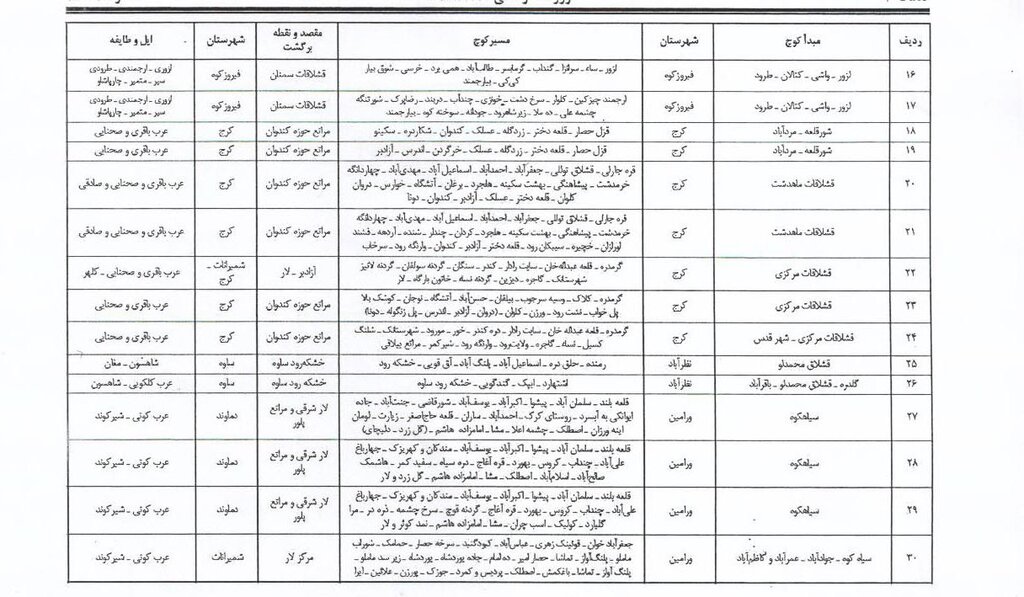 ردیف | مبدأ کوچ | شهرستان | مسیر کوچ | مقصد و نقطه برگشت | شهرستان | ایل و طایفه
۱۶ | لزور ـ واشی ـ کتالان ـ طرود | فیروزکوه | لزور ـ ساء ـ سرانزا ـ گنداب ـ گرمابسر ـ طالب‌آباد ـ همی برد ـ خرسی ـ شوق بیار
کی‌کی ـ بیارجمند | قشلاقات سمنان | فیروزکوه | لزوری ـ ارجمندی ـ طرودی
سیر ـ متمیر ـ چارپاشلو
۱۷ | لزور ـ واشی ـ کتالان ـ طرود | فیروزکوه | ارجمند چیزکین ـ کلوار ـ سرخ دشت ـ خوازی ـ چنداب ـ دربند ـ رضاپرک ـ شورتنگه
چشمه علی ـ ده ملا ـ زیرشاهرود ـ جودانه ـ سوخته کوه ـ بیارجمند | قشلاقات سمنان | فیروزکوه | لزوری ـ ارجمندی ـ طرودی
سیر ـ متمیر ـ چارپاشلو
۱۸ | شورقلعه ـ مردآباد | کرج | قزل حصار ـ قلعه دختر ـ زردگله ـ عسلک ـ کندوان ـ شکاردره ـ سکینو | مراتع حوزه کندوان | کرج | عرب باقری و صحنایی
۱۹ | شورقلعه ـ مردآباد | کرج | قزل حصار ـ قلعه دختر ـ زردگله ـ عسلک ـ خرگردن ـ اندرس ـ آزادبر | مراتع حوزه کندوان | کرج | عرب باقری و صحنایی
۲۰ | قشلاقات ماهدشت | کرج | قره جارلی ـ قشلاق توللی ـ جعفرآباد ـ احمدآباد ـ اسماعیل آباد ـ مهدی‌آباد ـ چهاردانگه
خرمدشت ـ پیشاهنگی ـ بهشت سکینه ـ هلجرد ـ برغان ـ آتشگاه ـ خوارس ـ دروان
کلوان ـ قلعه دختر ـ عسلک ـ آزادبر ـ کندوان ـ دونا | مراتع حوزه کندوان | کرج | عرب باقری و صحنایی و صادقی
۲۱ | قشلاقات ماهدشت | کرج | قره جارلی ـ قشلاق توللی ـ جعفرآباد ـ احمدآباد ـ اسماعیل آباد ـ مهدی‌آباد ـ چهاردانگه
خرمدشت ـ پیشاهنگی ـ بهشت سکینه ـ هلجرد ـ کردان ـ چندار ـ شنده ـ آردهه ـ فشند
لورازان ـ خچیره ـ سیبکان رود ـ قلعه دختر ـ آزادبر ـ کندوان ـ وارنگه رود ـ سرخاب | مراتع حوزه کندوان | کرج | عرب باقری و صحنایی و صادقی
۲۲ | قشلاقات مرکزی | کرج | گرمدره ـ قلعه عبداله‌خان ـ سایت رادار ـ کندر ـ سنگان ـ گردنه سولقان ـ گردنه لانیز
شهرستانک ـ گاجره ـ دیزین ـ گردنه نسه ـ خاتون بارگاه ـ لار | آزادبر ـ لار | شمیرانات ـ
کرج | عرب باقری و صحنایی ـ کلهر
۲۳ | قشلاقات مرکزی | کرج | گرمدره ـ کلاک ـ وسیه سرجوب ـ بیلقان ـ حسن‌آباد ـ آتشگاه ـ نوجان ـ کوشک بالا
پل خواب ـ فشت رود ـ ورزن ـ کلوان ـ (دروان ـ آزادبر ـ اندرس ـ پل زنگوله ـ دونا) | مراتع حوزه کندوان | کرج | عرب باقری و صحنایی
۲۴ | قشلاقات مرکزی ـ شهر قدس | کرج | گرمدره ـ قلعه عبداله خان ـ سایت رادار ـ دره کندر ـ خور ـ مورود ـ شهرستانک ـ شلنگ
کسیل ـ نسه ـ گاجره ـ ولایت‌رود ـ وارنگه رود ـ شیرکمر ـ مراتع ییلاقی | مراتع حوزه کندوان | کرج | عرب باقری و صحنایی
۲۵ | قشلاق محمدلو | نظرآباد | رمنده ـ حلق دره ـ اسماعیل آباد ـ پلنگ آباد ـ آق قویی ـ خشکه رود | خشکه‌رود ساوه | ساوه | شاهسون ـ مغان
۲۶ | گلدره ـ قشلاق محمدلو ـ باقرآباد | نظرآباد | اشتهارد ـ ایپک ـ گندگویی ـ خشکه رود ساوه | خشکه رود ساوه | ساوه | عرب کلکویی ـ شاهسون
۲۷ | سیاهکوه | ورامین | قلعه بلند ـ سلمان آباد ـ پیشوا ـ اکبرآباد ـ یوسف‌آباد ـ شورقاضی ـ جنت‌آباد ـ جاده
ایوانکی به آبسرد ـ روستای کرک ـ احمدآباد ـ ساران ـ قلعه حاج‌اصغر ـ زیارت ـ لومان
اینه ورزان ـ اصطلک ـ چشمه اعلا ـ مشا ـ امامزاده هاشم ـ (گل زرد ـ دلیچای) | لار شرقی و مراتع
پلور | دماوند | عرب کوتی ـ شیرکوند
۲۸ | سیاهکوه | ورامین | قلعه بلند ـ سلمان آباد ـ پیشوا ـ اکبرآباد ـ یوسف‌آباد ـ مندکان و کهریزک ـ چهارباغ
علی‌آباد ـ چنداب ـ کروس ـ یهورد ـ قره آغاج ـ دره سیاه ـ سفید کمر ـ هاشمک
صالح‌آباد ـ اسلام‌آباد ـ اصطلک ـ مشا ـ امامزاده هاشم ـ گل زرد و لار | لار شرقی و مراتع
پلور | دماوند | عرب کوتی ـ شیرکوند
۲۹ | سیاهکوه | ورامین | قلعه بلند ـ سلمان آباد ـ پیشوا ـ اکبرآباد ـ یوسف‌آباد ـ مندکان و کهریزک ـ چهارباغ
علی‌آباد ـ چنداب ـ کروس ـ یهورد ـ قره آغاج ـ گردنه قوچ ـ سرخ چشمه ـ دره در ـ مرا
گلیارد ـ کوئیک ـ اسب چران ـ مشا ـ امامزاده هاشم ـ نمد کوثر و لار | لار شرقی و مراتع
پلور | دماوند | عرب کوتی ـ شیرکوند
۳۰ | سیاه کوه ـ جوادآباد ـ عمرآباد و کاظم‌آباد | ورامین | جعفرآباد خوان ـ قوئینک زهری ـ عباس‌آباد ـ کبودگنبد ـ سرخه حصار ـ حمامک ـ شوراب
ماملو ـ پلنگ‌آواز ـ تماشا ـ حصار امیر ـ ده‌امام ـ جاده پوردشاه ـ پوردشاه ـ زیر سد ماملو
پلنگ آواز ـ تماشا ـ باغکمش ـ اصطلک ـ پردیس و کمرد ـ جوزک ـ پورزن ـ علائین ـ ایرا | مرکز لار | شمیرانات | عرب کوتی ـ شیرکوند